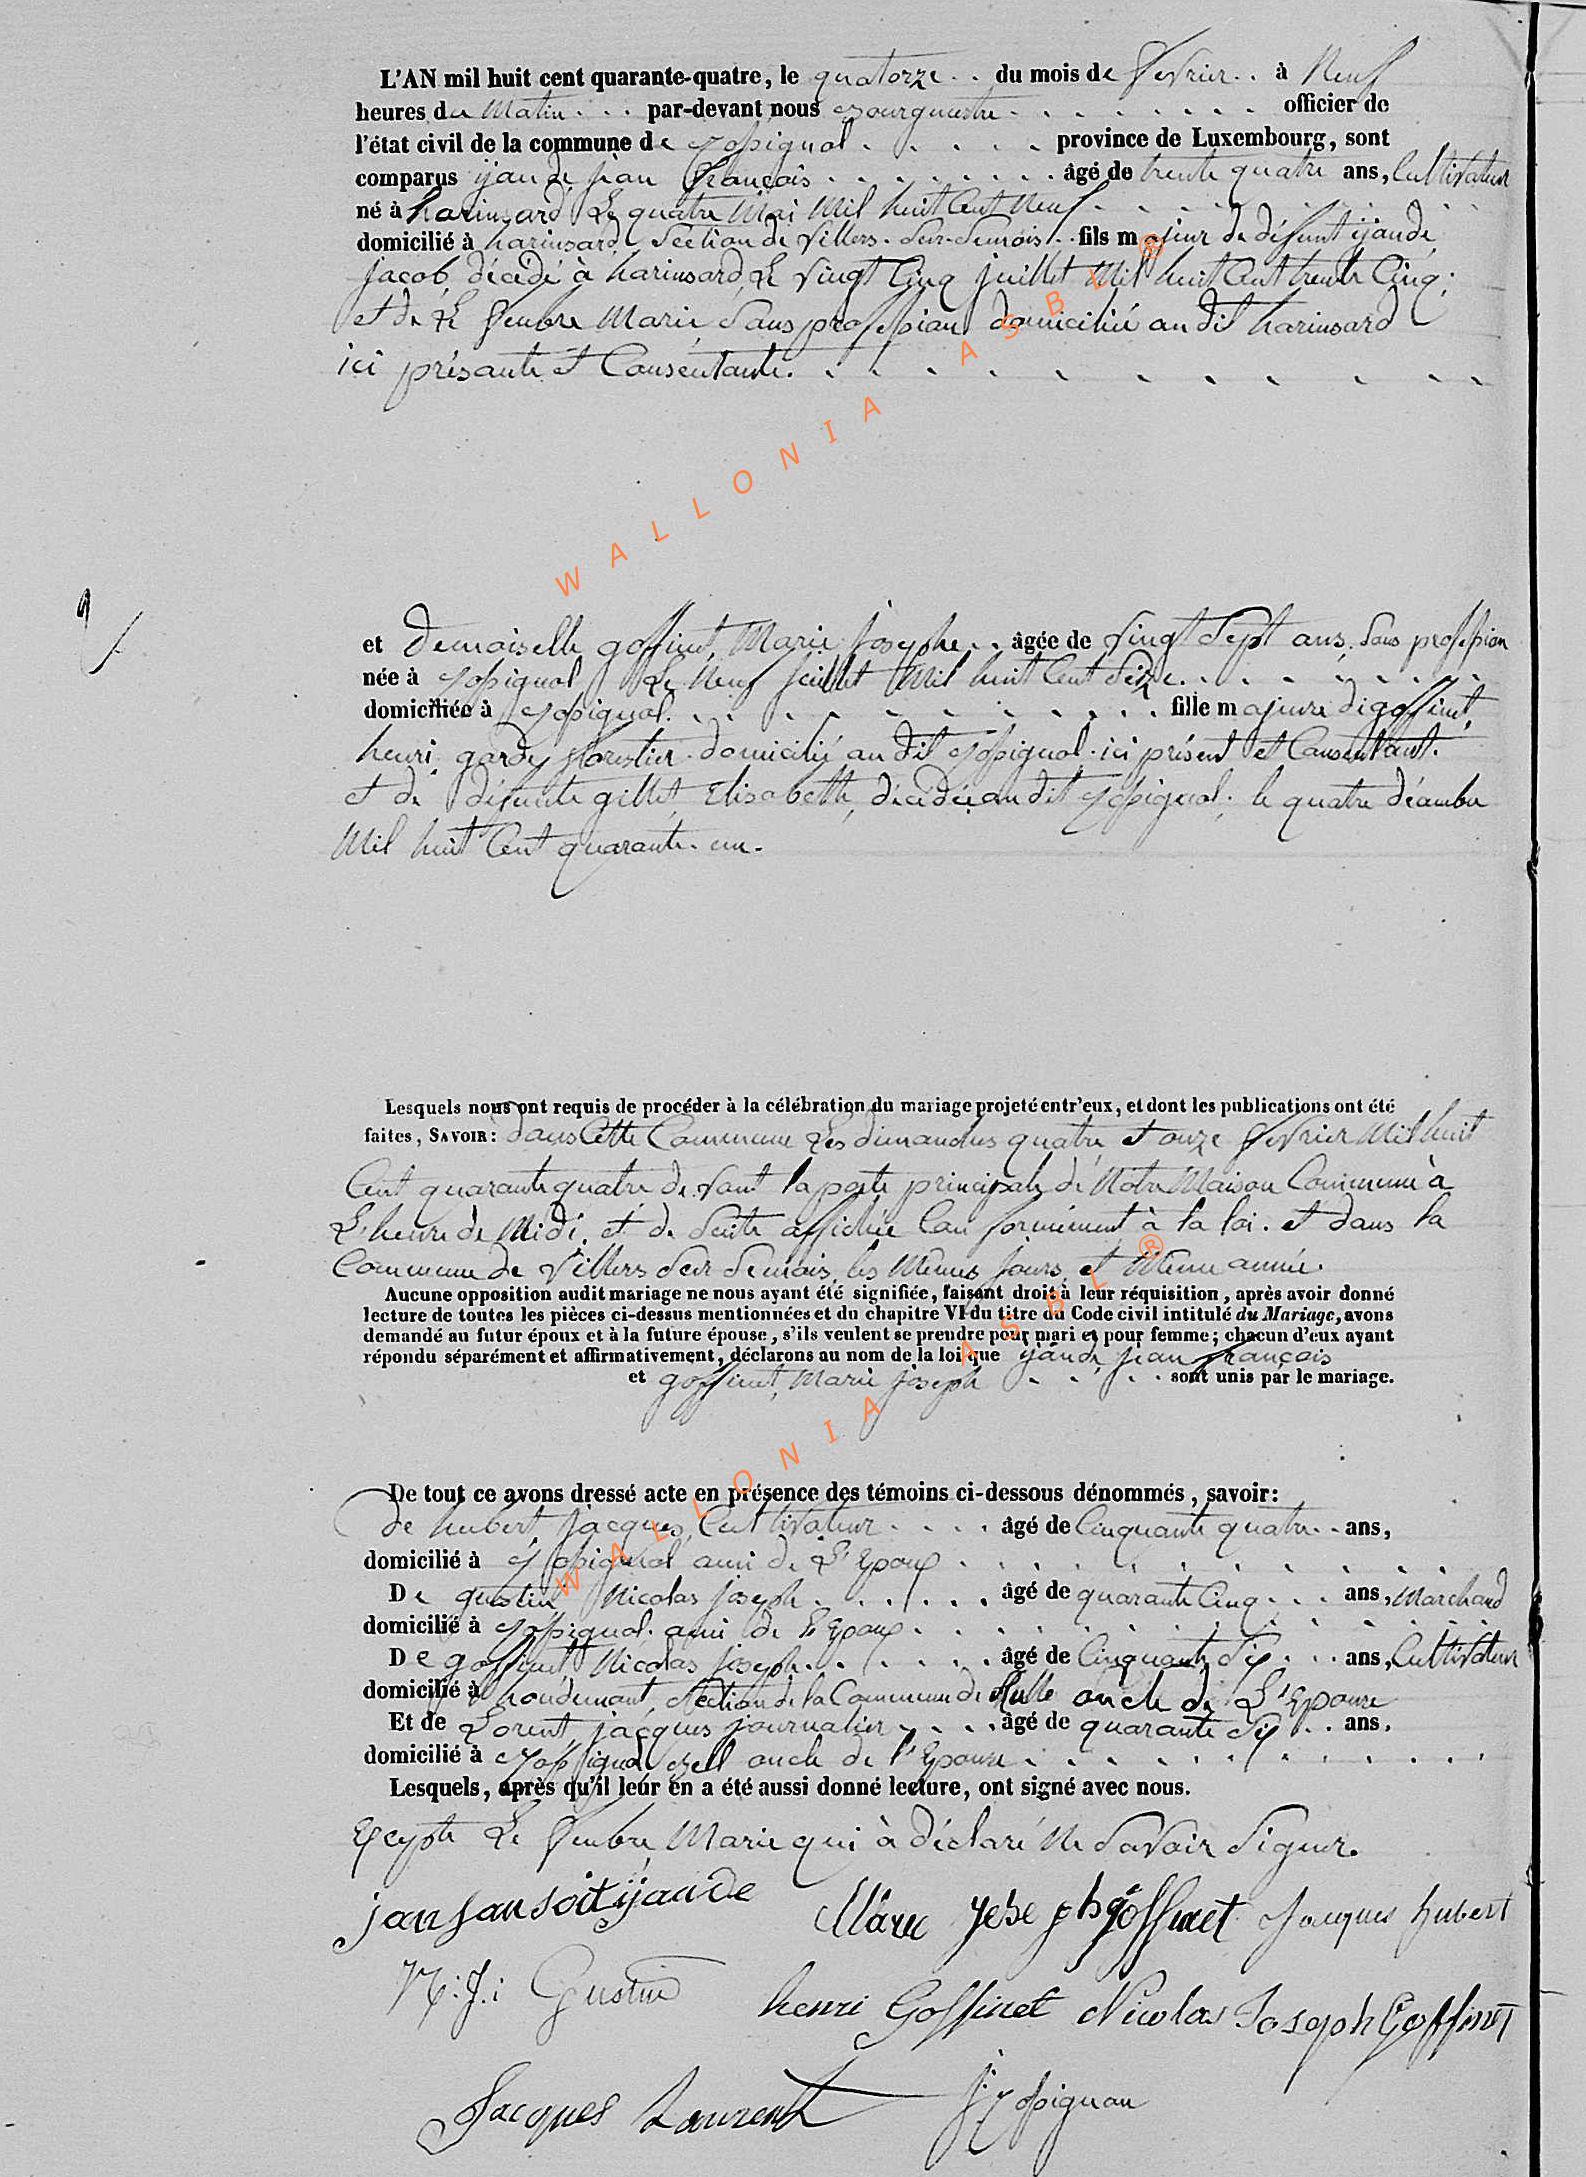 L'AN mil huit cent quarante-quatre, le quatorze .. du mois de fevrier .. à Neuf
heures du Matin . . . par-devant nous Bourguestre . . . . . . . . officier de
l'état civil de la commune de . . . . . province de Luxembourg, sont
comparus ijande, jean françois . . . . . . . . . âgé de trente quatre ans, Cultivateur
né à harinsard, Le quatre Mai Mil huit Cent Neuf . . . . . . .
domicilié à harinsard, Section de Villers-Sur-Semois .. fils majeur de défunt ijande,
jacob, décédé à harinsard, Le Vingt Cinq juillet Mil huit Cent trente Cinq;
et de Le fenbre Marie, Sans profession, domiciliée au dit harinsard
ici présante et Consentante. . . . . . . . . . . .
9/
et Demoiselle goffinet, Marie josephe .. âgée de Vingt Sept ans, Sans profession
née à Le Neuf juillet Mil huit Cent Seize . . . . . .
domiciliée à . . . . . . . . . . fille majeure de goffinet,
henri gardes forestier domicilié au dit ici présent et Consentant.
et de défunte gillet, Elisabette, décédée au dit le quatre décembre
Mil huit Cent quarante-un.
Lesquels nous ont requis de procéder à la célébration du mariage projeté entr'eux, et dont les publications ont été
faites, SAVOIR: dans Cette Commune Les dimanches quatre et onze fevrier Mil huit
Cent quarante quatre de Vant la porte principale de Notre Maison Commune à
L'heure de Midi, et de Suite affichée Con formément à la loi. et dans la
Commune de Villers Sur Semois, les Mêmes jours et Même année.
Aucune opposition audit mariage ne nous ayant été signifiée, faisant droit à leur réquisition, après avoir donné
lecture de toutes les pièces ci-dessus mentionnées et du chapitre VI du titre du Code civil intitulé du Mariage, avons
demandé au futur époux et à la future épouse, s'ils veulent se prendre pour mari et pour femme; chacun d'eux ayant
répondu séparément et affirmativement, déclarons au nom de la loi que ijande, jean françois
et goffinet, Marie joseph . . . . sont unis par le mariage.
De tout ce avons dressé acte en présence des témoins ci-dessous dénommés, savoir:
De hubert, jacques, Cultivateur . . . . âgé de Cinquante quatre .. ans,
domicilié à ami de L'Epoux . . . . . . . . .
De gustin Nicolas joseph . . . . . . âgé de quarante Cinq . . . ans, Marchand
domicilié à ami de L'Epoux . . . . . . . . . .
De goffinet, Nicolas joseph . . . . . . âgé de Cinquante Six . . . ans, Cultivateur
domicilié à houdemont, Section de la Commune de Rulle oncle de L'Epouse
Et de Lorent, jacques journalier . . . . âgé de quarante Six . . ans.
domicilié à oncle de l'Epouse . . . . . . . . .
Lesquels, après qu'il leur en a été aussi donné lecture, ont signé avec nous.
Excepte Le fenbre, Marie qui à déclaré Ne Savoir Signer.
jan fransoit ijande Marie Jesephe goffinet Jacques hubert
N: J: Gustin henri Goffinet Nicolas Joseph Goffinet
Jacques Laurent
WALLONIA ASBL ®
WALLONIA ASBL ®